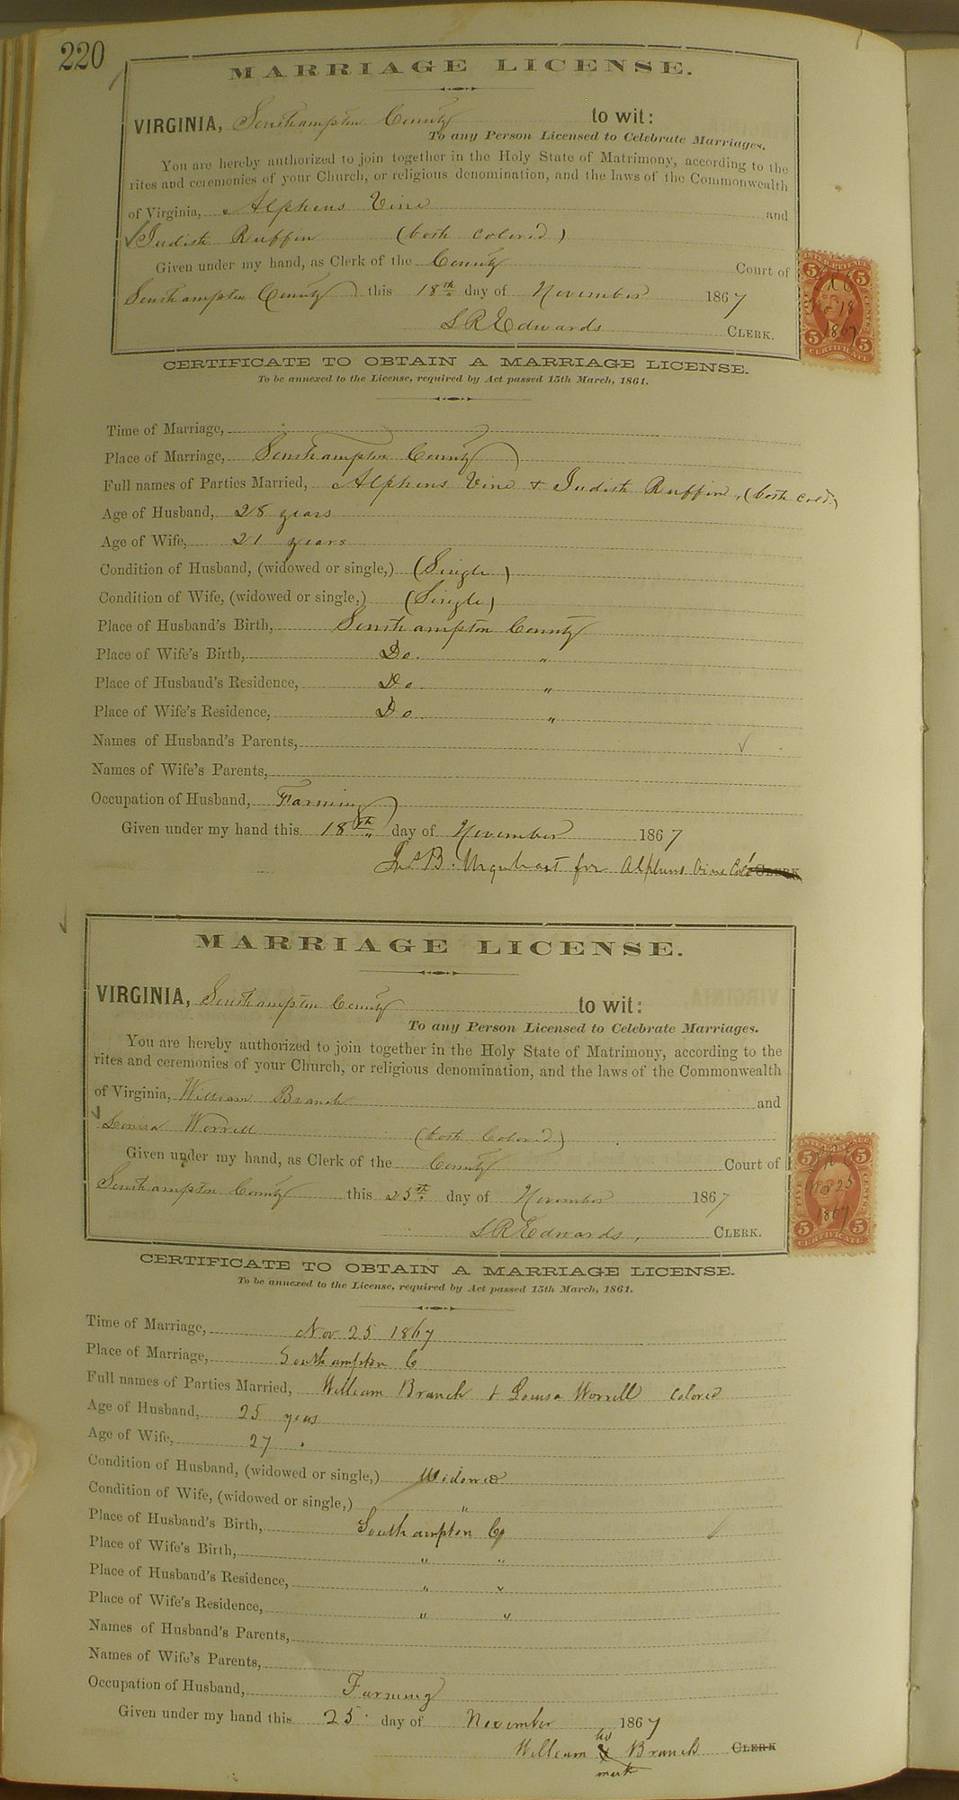 220
MARRIAGE LICENSE.
VIRGINIA, Southampton County to wit:
To any Person Licensed to Celebrate Marriages.
You are hereby authorized to join together in the Holy State of Matrimony, according to the
rites and ceremonies of your Church, or religious denomination, and the laws of the Commonwealth
of Virginia, Alpheus Vine and
Judith Ruffin (both colored)
Given under my hand, as Clerk of the County Court of
Southampton County this 18th day of November 1867
L R Edwards CLERK.
INTER. REVENUE
5 5
18
1867
5 5
CERTIFICATE
CERTIFICATE TO OBTAIN A MARRIAGE LICENSE.
To be annexed to the License, required by Act passed 15th March, 1861.
Time of Marriage,
Place of Marriage, Southampton County
Full names of Parties Married, Alpheus Vine + Judith Ruffin, (both cold)
Age of Husband, 28 years
Age of Wife, 21 years
Condition of Husband, (widowed or single,) (Single)
Condition of Wife, (widowed or single,) (Single)
Place of Husband's Birth, Southampton County
Place of Wife's Birth, Do. "
Place of Husband's Residence, Do. "
Place of Wife's Residence, Do. "
Names of Husband's Parents,
Names of Wife's Parents,
Occupation of Husband, Farming
Given under my hand this 18th day of November 1867
B. Urquhart for Alpheus Vine Cold CLERK
MARRIAGE LICENSE.
VIRGINIA, Southampton County to wit:
To any Person Licensed to Celebrate Marriages.
You are hereby authorized to join together in the Holy State of Matrimony, according to the
rites and ceremonies of your Church, or religious denomination, and the laws of the Commonwealth
of Virginia, William Branch and
Louisa Worrell (both Colored)
Given under my hand, as Clerk of the County Court of
Southampton County this 25th day of November 1867
L R Edwards, CLERK.
5 5
25
1867
5 5
CERTIFICATE
CERTIFICATE TO OBTAIN A MARRIAGE LICENSE.
To be annexed to the License, required by Act passed 15th March, 1861.
Time of Marriage, Nov 25 1867
Place of Marriage, Southampton C
Full names of Parties Married, William Branch + Louisa Worrell Colored
Age of Husband, 25 years
Age of Wife, 27 "
Condition of Husband, (widowed or single,) Widowed
Condition of Wife, (widowed or single,) "
Place of Husband's Birth, Southampton Co
Place of Wife's Birth, " "
Place of Husband's Residence, " "
Place of Wife's Residence, " "
Names of Husband's Parents,
Names of Wife's Parents,
Occupation of Husband, Farming
Given under my hand this 25 day of November 1867
his
William X Branch CLERK
mark